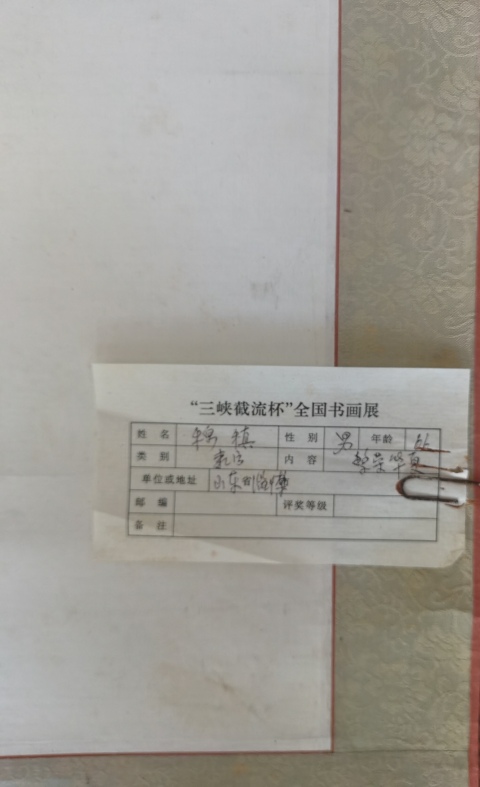 “三峡截流杯”全国书画展
姓 名 性 别 男 年龄
类 别 书法 内 容 繁荣华夏
单位或地址 山东省淄博
邮 编 评奖等级
备 注